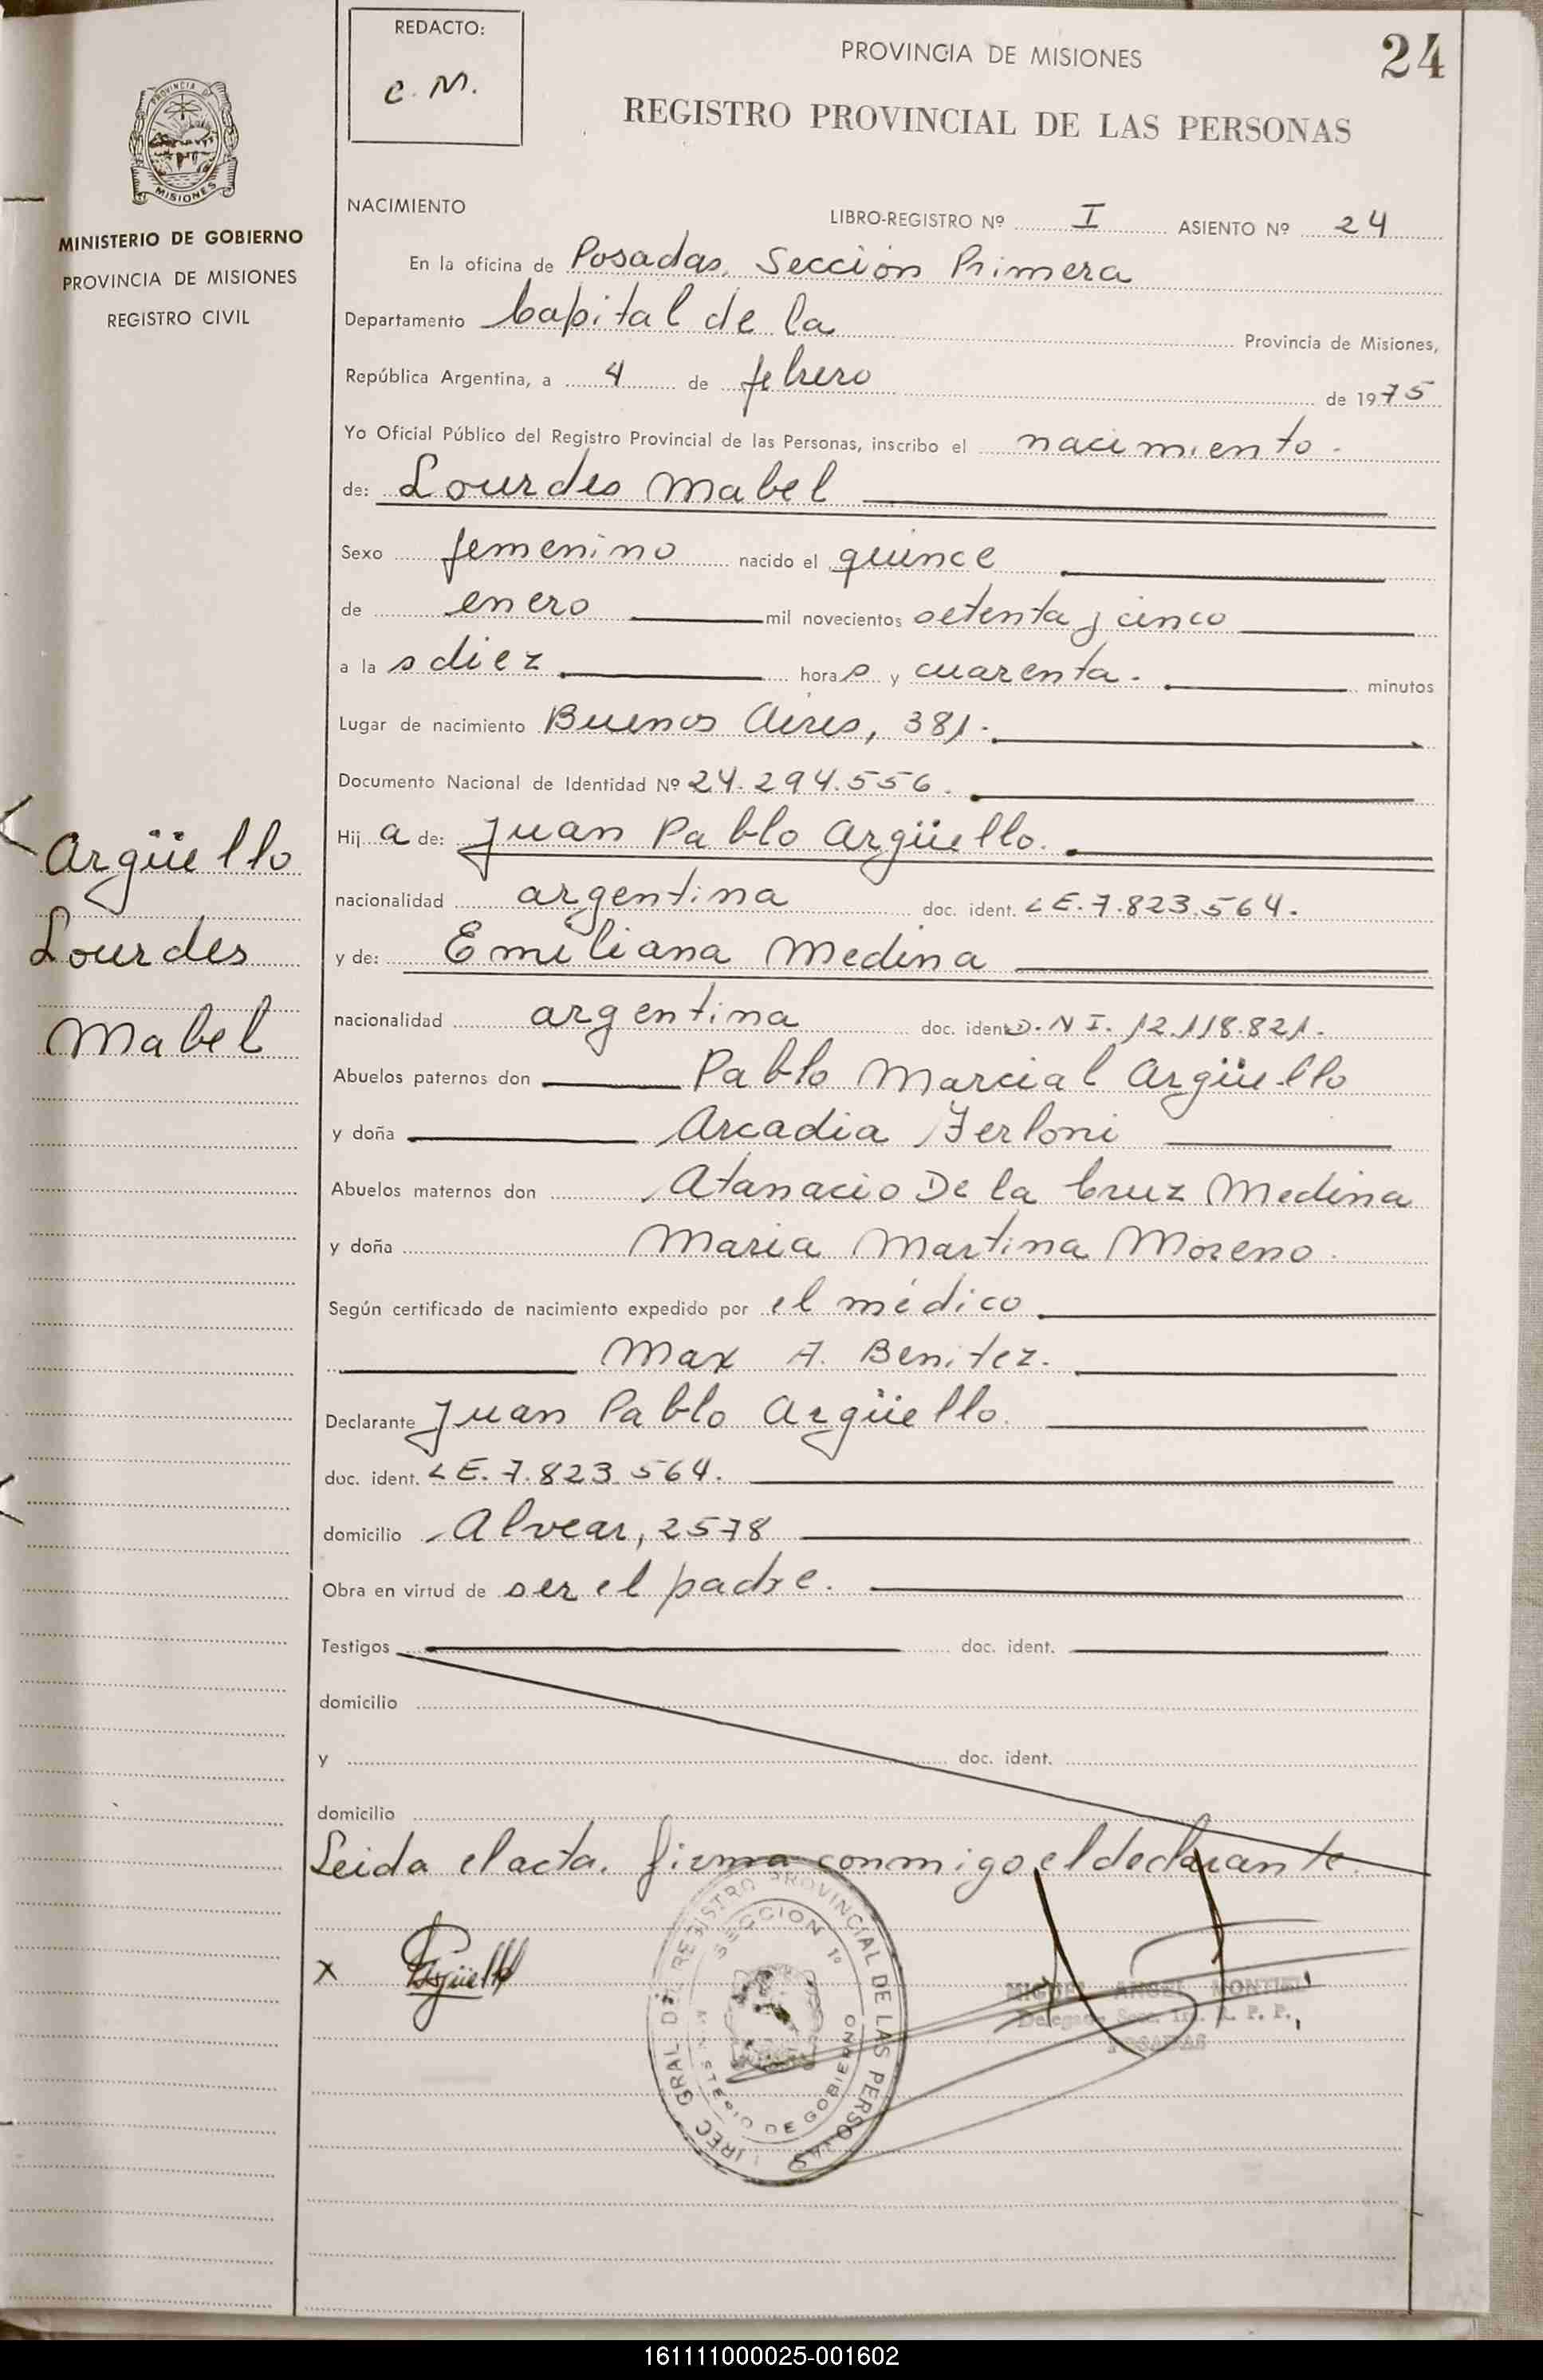 REDACTO:
C. M.
PROVINCIA DE MISIONES
24
REGISTRO PROVINCIAL DE LAS PERSONAS
PROVINCIA DE
MISIONES
MINISTERIO DE GOBIERNO
PROVINCIA DE MISIONES
REGISTRO CIVIL
Argüello
Lourdes
Mabel
NACIMIENTO
LIBRO-REGISTRO Nº I ASIENTO Nº 24
En la oficina de Posadas, Sección Primera
Departamento Capital de la Provincia de Misiones,
República Argentina, a 4 de febrero de 1975
Yo Oficial Público del Registro Provincial de las Personas, inscribo el nacimiento.
de: Lourdes Mabel
Sexo femenino nacido el quince
de enero mil novecientos setenta y cinco
a las diez horas y cuarenta. minutos
Lugar de nacimiento Buenos Aires, 381.
Documento Nacional de Identidad Nº 24.294.556.
Hija de: Juan Pablo Argüello.
nacionalidad argentina doc. ident. LE. 7.823.564.
y de: Emiliana Medina
nacionalidad argentina doc. ident. D.N I. 12.118.821.
Abuelos paternos don Pablo Marcial Argüello
y doña Arcadia Ferloni
Abuelos maternos don Atanacio De la Cruz Medina
y doña Maria Martina Moreno.
Según certificado de nacimiento expedido por el médico
Max A. Benitez.
Declarante Juan Pablo Argüello.
doc. ident. LE. 7.823.564.
domicilio Alvear, 2578
Obra en virtud de ser el padre.
Testigos doc. ident.
domicilio
y doc. ident.
domicilio
Leida el acta. firma conmigo el declarante.
x Argüello
DIREC. GRAL DEL REGISTRO PROVINCIAL DE LAS PERSONAS
SECCION 1º
MINISTERIO DE GOBIERNO
MIGUEL ANGEL MONTIEL
POSADAS
161111000025-001602